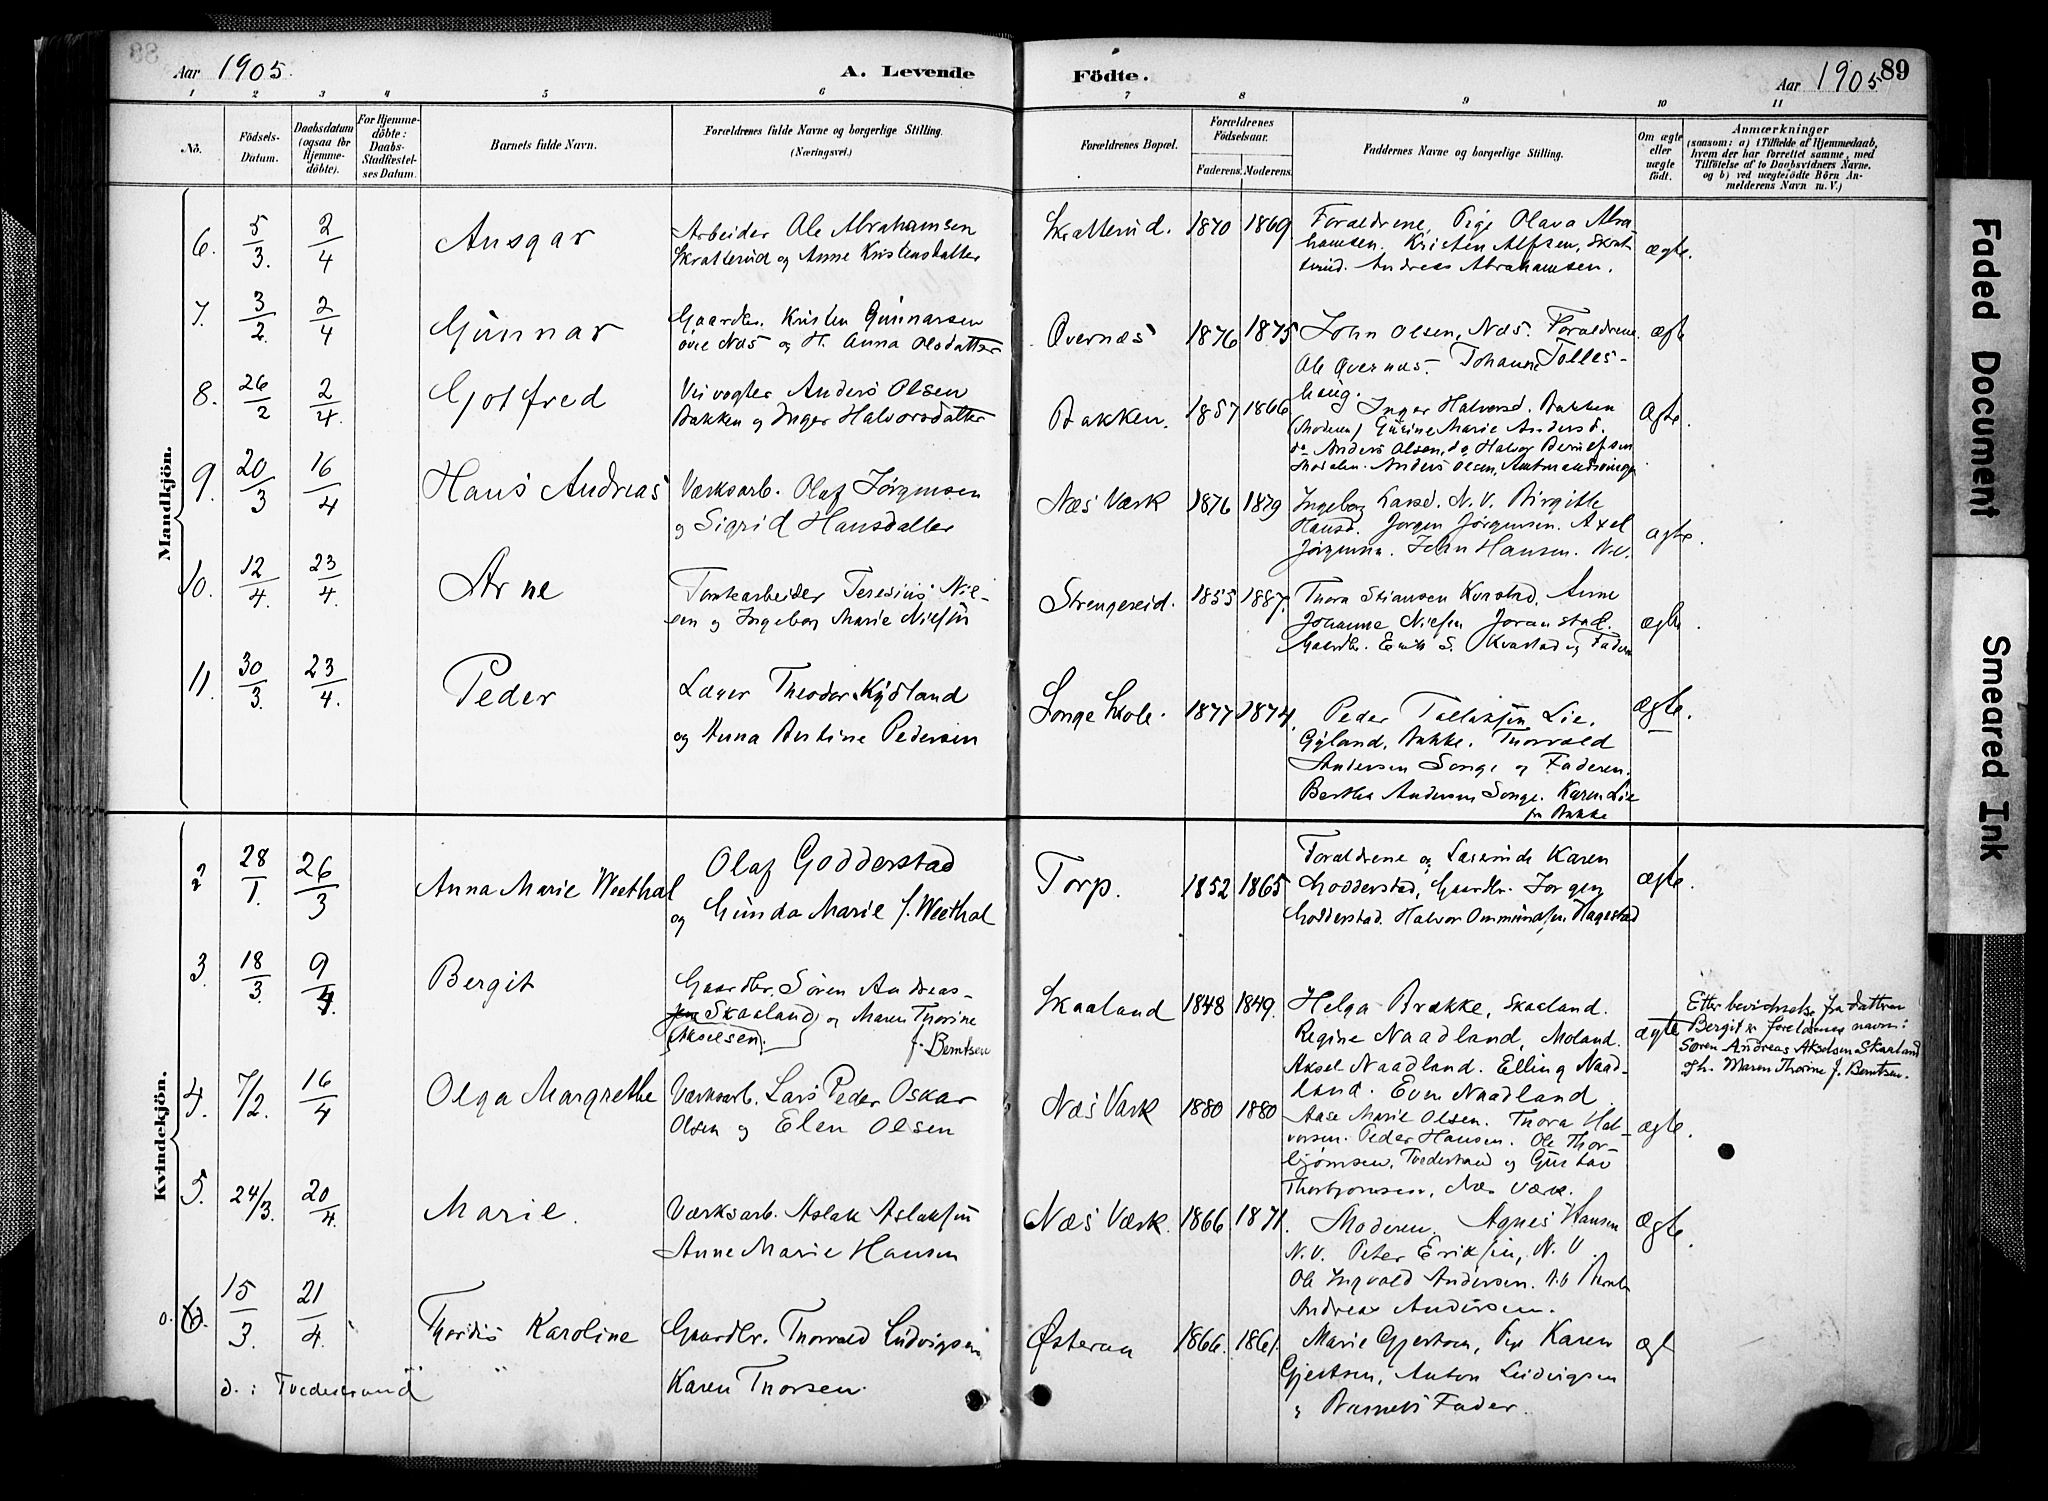 Aar 1905.
A. Levende
Födte.
Aar 1905
89
1 2 3 4 5 6 7 8 9 10 11
No.
Födsels-Datum.
Daabsdatum (ogsaa for Hjemmedöbte).
For Hjemmedöbte: Daabs-Stadfæstelses Datum.
Barnets fulde Navn.
Forældrenes fulde Navne og borgerlige Stilling.
(Næringsvei.)
Forældrenes Bopæl.
Forældrenes Födselsaar.
Faderens. Moderens.
Faddernes Navne og borgerlige Stilling.
Om ægte eller uægte födt.
Anmærkninger
(saasom: a) i Tilfælde af Hjemmedaab,
hvem der har forrettet samme, med
Tilföielse af to Daabsvidners Navne,
og b) ved uægtefödte Börn Anmelderens Navn m. V.)
Mandkjön.
6. 5/3. 2/4 Ansgar
Arbeider Ole Abrahamsen
Skratterud og Anne Kristensdatter
Skratterud. 1870 1869
Forældrene, Pige Olava Abra-
hamsen. Kristen Alfsen, Skrat-
terud. Andreas Abrahamsen.
ægte.
7. 3/2. 2/4 Gunnar
Gaardbr. Kristen Gunnarsen
øvre Næs og H. Anna Olsdatter
Overnæs 1876 1875
John Olsen, Næs. Forældrene
Ole Overnæs. Johanne Tolles-
haug.
ægte
8. 26/2 2/4. Gotfred
Veivogter Anders Olsen
Bakken og Inger Halvorsdatter
Bakken. 1857 1866
Inger Halvorsd. Bakken
(Moderen) Gurine Marie Andersd.
do Anders Olsen, do Halvor Berntsen
Anders Olsen,
ægte.
9. 20/3 16/4 Hans Andreas
Værksarb. Olaf Jørgensen
og Sigrid Hansdatter
Næs Værk 1876 1879
Ingeborg Larsd. N. V. Birgitte
Hansd. Jørgen Jørgensen. Axel
Jørgensen. John Hansen. N.V.
ægte.
10. 12/4. 23/4. Arne
Tomtearbeider Teresius Niel-
sen og Ingeborg Marie Nielsen
Strengereid. 1855 1887.
Thora Stiansen Kvastad. Anne
Johanne Nielsen Joranstad.
Gaardbr. Erik S. Kvastad og Faderen
ægte
11. 30/3. 23/4. Peder
Lærer Theodor Kydland
og Anna Antine Pedersen
Songe Skole. 1877 1874.
Peder Tallaksen Lie,
Gyland, Bakke. Thorvald
Andersen Songe og Faderen.
Bertha Andersen Songe. Karen Lie
fra Bakke
ægte.
Kvindekjön.
2 28/1. 26/3 Anna Marie Weethal
Olaf Godderstad
og Gunda Marie f. Weethal
Torp. 1852 1865
Forældrene og Karen
Godderstad, Gaardbr. Jørgen
Godderstad. Halvor Ommundsen Hagestad
ægte.
3. 18/3. 9/4. Bergit
Gaardbr. Søren Andreas-
sen Skaaland og Maren Thorine
(Akselsen) f. Berntsen
Skaaland 1848 1849.
Helga Brække, Skaaland.
Regine Naadland, Moland.
Aksel Naadland. Elling Naad-
land. Even Naadland.
ægte
Efter bevidnelse fra datteren
Bergit er foreldrenes navn:
Søren Andreas Akselsen Skaaland
og h. Maren Thorine f. Berntsen.
4. 7/2. 16/4 Olga Margrethe
Værksarb. Lars Peder Oskar
Olsen og Elen Olsen
Næs Værk 1880 1880
Aase Marie Olsen. Thora Hal-
vorsen. Peder Hansen. Ole Thor-
bjørnsen, Tvedestrand og Gustav
Thorbjørnsen, Næs Værk.
ægte.
5. 24/3. 20/4. Marie.
Værksarb. Aslak Aslaksen
Anne Marie Hansen
Næs Værk. 1866 1871.
Moderen, Agnes Hansen
N. V. Peter Eriksen, N. V.
Ole Ingvald Andersen. N.V.
Andreas Andersen.
ægte.
o. 6. 15/3. 21/4. Thordis Karoline
Gaardbr. Thorvald Ludvigsen
Karen Thorsen.
d. i Tvedestrand
Østeraa 1866. 1861.
Marie Gjertsen, Pige Karen
Gjertsen, Anton Ludvigsen
og Barnets Fader.
ægt
Faded Document
Smeared Ink